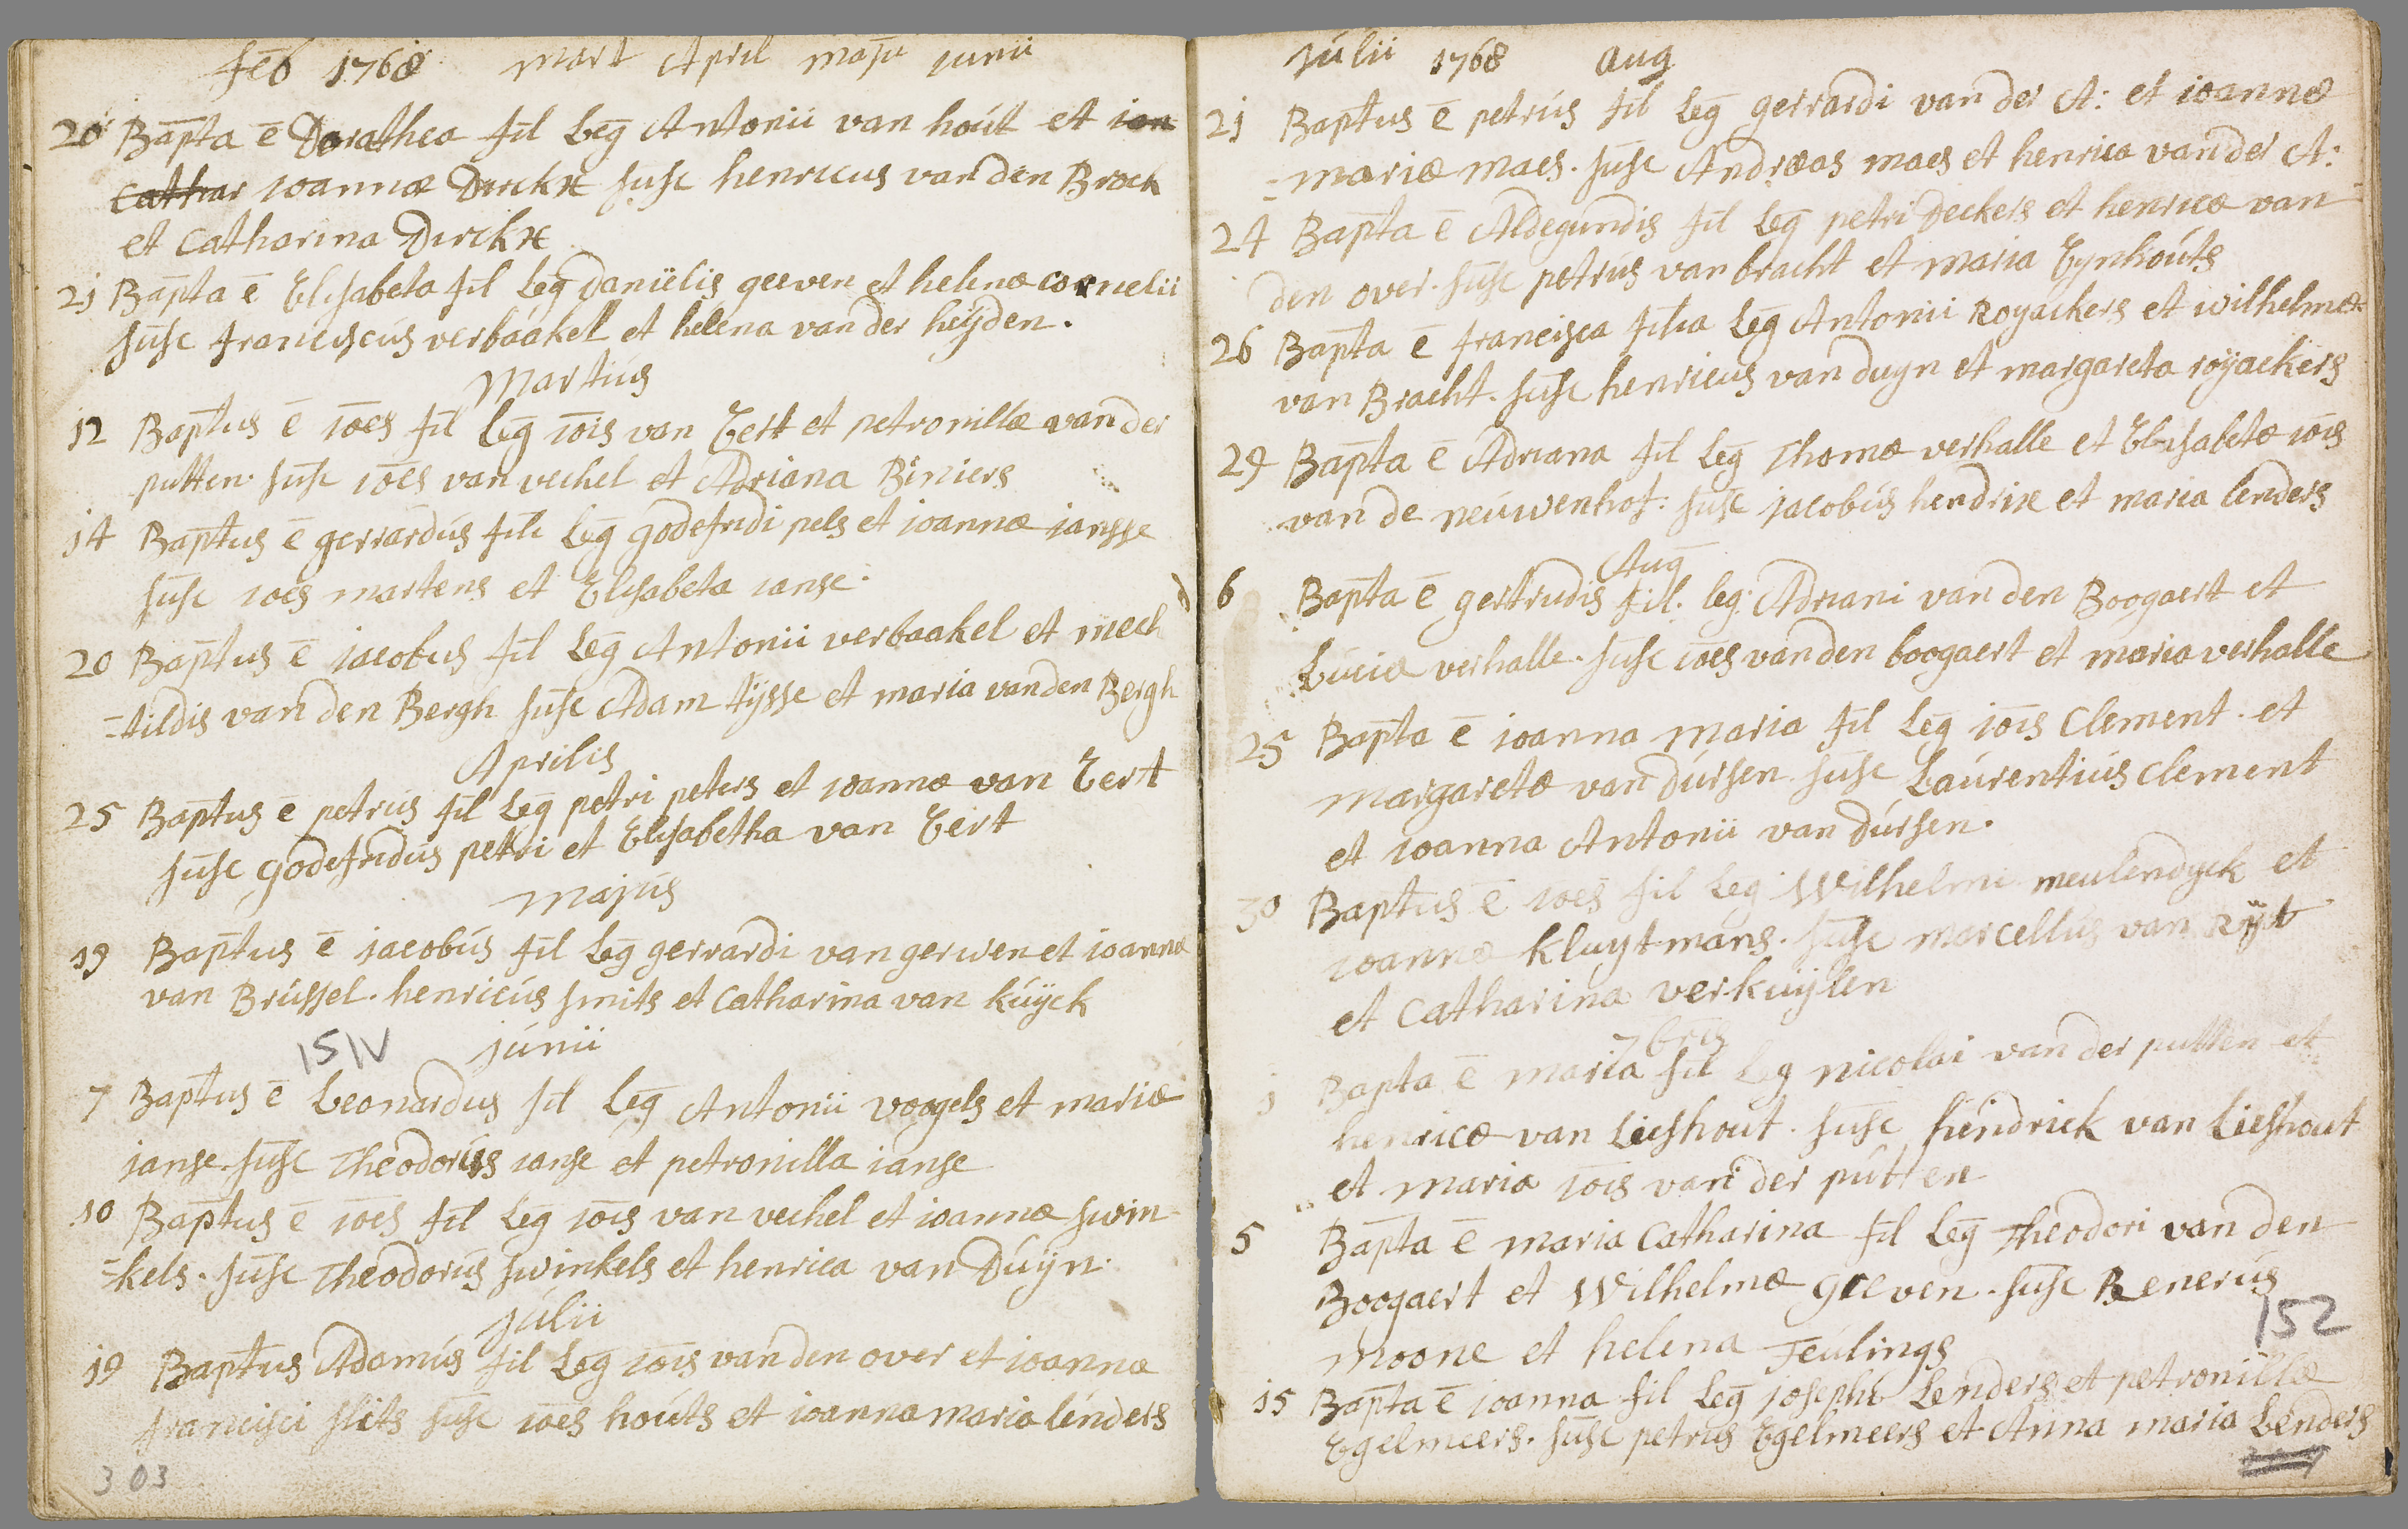 feb 1768 mart April maju junii
20 Bapta ē Dorathea fil Leg Antonii van hout et ian
Cathar ioannæ Dirckx susc henricus van den Brock
et Catharina Dirckx
21 Bapta ē Elisabeta fil Leg Daniëlis geeven et helenæ cornelii
susc franciscus verbaakel et helena van der heijden.
Martius
12 Baptus ē ioes fil Leg iois van Eert et petronillæ van der
putten. susc ioes van vechel et Adriana Biniers
14 Baptus ē gerrardus fili Leg godefridi pels et ioannæ iansse
susc ioes martens et Elisabeta ianse.
20 Baptus ē jacobus fil Leg Antonii verbaakel et mech
=tildis van den Bergh susc Adam tijsse et maria van den Bergh
Aprilis
25 Baptus ē petrus fil Leg petri peters et ioannæ van Eert
susc godefridus petri et Elisabetha van Eert
Majus
19 Baptus ē jacobus fil Leg gerrardi van gerwen et ioannæ
van Brussel. henricus smits et Catharina van kuijck
151V
junii
7 Baptus ē Leonardus fil Leg Antonii voogels et mariæ
ianse. susc Theodorus ianse et petronilla ianse
10 Baptus ē ioes fil Leg iois van vechel et ioannæ swin
=kels. susc Theodorus swinkels et henrica van Duijn.
julii
19 Baptus Adamus fil Leg iois van den over et ioannæ
francisci slits susc ioes houts et ioanna maria lenders
303
julii 1768 aug
21 Baptus ē petrus fil Leg gerrardi van der A: et ioannæ
=mariæ maes. susc Andreas maes et henrica van der A:
24 Bapta ē Aldegundis fil Leg petri Deckers et henricæ van
den over. susc petrus van bracht et maria Eynhouts
26 Bapta ē francisca filia Leg Antonii Royackers et wilhelmæ
van Bracht. susc henricus van duyn et margareta roijackers
29 Bapta ē Adriana fil Leg Thomæ verhalle et Elisabetæ iois
van de neuwenhof: susc jacobus hendrix et maria lenders
Aug
6 Bapta ē gertrudis fil. leg: Adriani van den Boogaert et
Luciæ verhalle. susc ioes van den boogaert et maria verhalle
25 Bapta ē ioanna maria fil Leg iois Clement. et
margaretæ van dursen susc Laurentius Clement
et ioanna Antonii van dursen.
30 Baptus ē ioes fil Leg Wilhelmi meulendyck et
ioannæ kluytmans. susc marcellus van Rijt
et Catharina verkuijlen
7bris
1 Bapta ē maria fil Leg nicolai van der putten et
henricæ van Lieshout. susc hendrick van Lieshout
et maria iois van der putten
5 Bapta ē maria Catharina fil Leg Theodori van den
Boogaert et Wilhelmæ geeven. susc Renerus
moone et helena Teulings
152
15 Bapta ē ioanna fil Leg josephi Lenders et petronillæ
Egelmeers. susc petrus Egelmeers et Anna maria Lenders